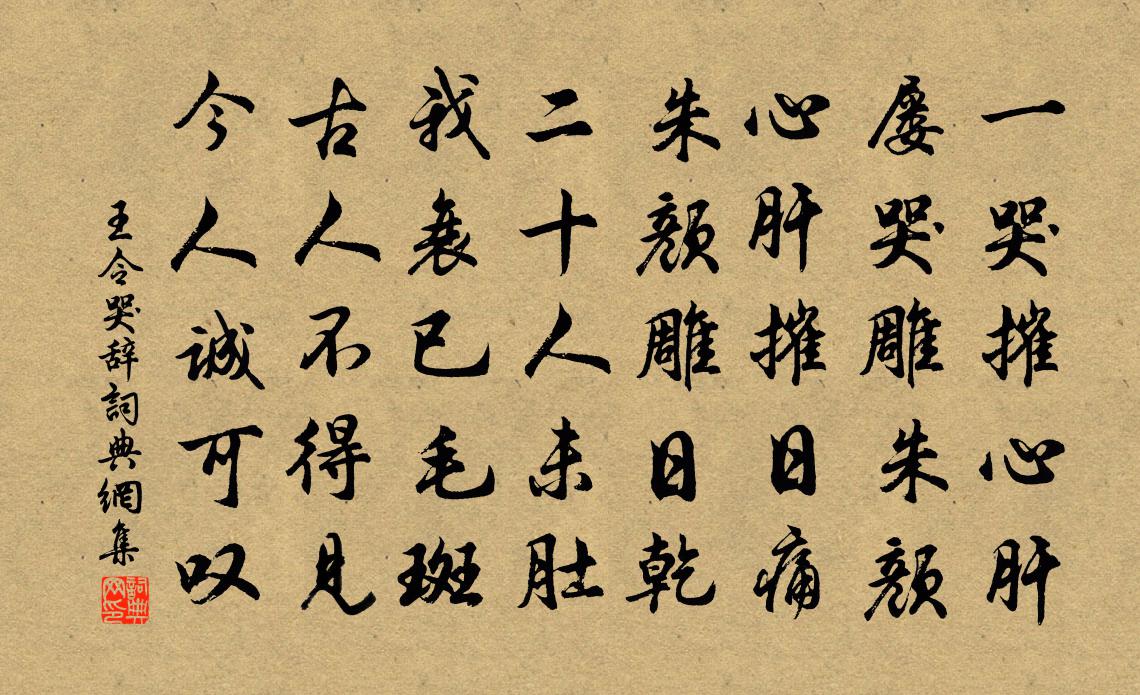 一哭摧心肝
屡哭雕朱顏
心肝摧日痛
朱顏雕日乾
二十人未肚
我衰已毛斑
古人不得見
今人誠可叹
王令哭辞詞典網集
詞典网印